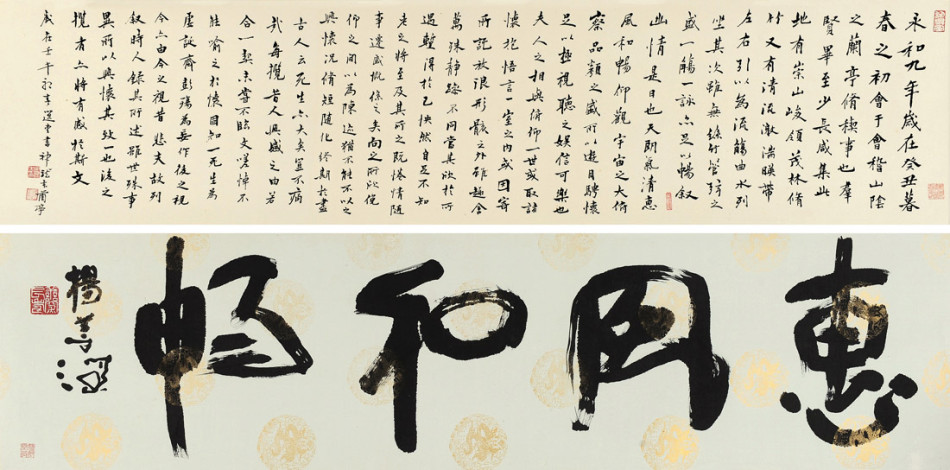 永和九年歲在癸丑暮
春之初會于會稽山陰
之蘭亭脩禊事也羣
賢畢至少長咸集此
地有崇山峻領茂林脩
竹又有清流激湍暎帶
左右引以為流觴曲水列
坐其次雖無絲竹管弦之
盛一觴一詠亦足以暢叙
幽情是日也天朗氣清惠
風和暢仰觀宇宙之大俯
察品類之盛所以遊目騁懷
足以極視聽之娛信可樂也
夫人之相與俯仰一世或取諸
懷抱悟言一室之內或因寄
所託放浪形骸之外雖趣舍
萬殊靜躁不同當其欣於所
遇蹔得於己怏然自足不知
老之將至及其所之既惓情隨
事遷感慨係之矣向之所欣俛
仰之間以為陳迹猶不能不以之
興懷況脩短隨化終期於盡
古人云死生亦大矣豈不痛
哉每攬昔人興感之由若
合一契未嘗不臨文嗟悼不
能喻之於懷固知一死生為
虛誕齊彭殤為妄作後之視
今亦由今之視昔悲夫故列
叙時人錄其所述雖世殊事
異所以興懷其致一也後之
攬者亦將有感於斯文
歲在壬午
惠風和暢
楊善深